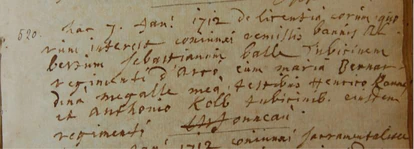 520. hac 7. Jani 1712 de licentia eorum quo
rum interest coniunxi remissis bannis Ro
bertum Sebastianum balle Tubicinem
regimenti d'Arco, cum maria Bernar
dina megalle meg. testibus Henrico
et Anthonio Kolb tubicinib. eiusdem
regimenti
1712 coniunxi sacramentaliter